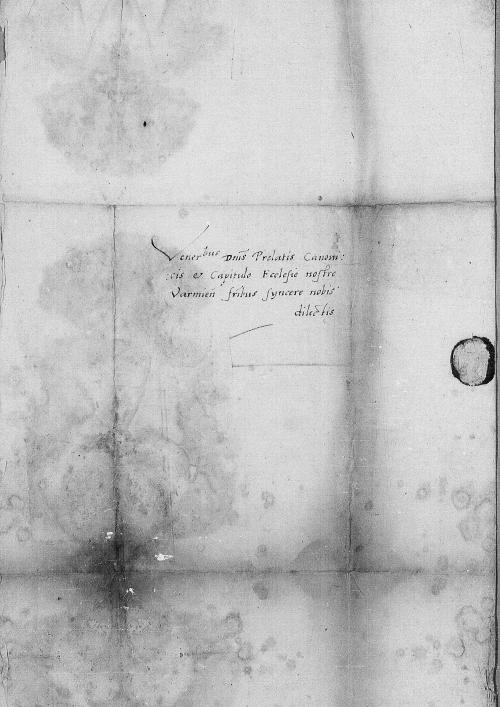 Venerbus Dnis Prelatis Canoni:
:cis & Capitulo Ecclesie nostre
Varmien fribus syncere nobis
dilectis